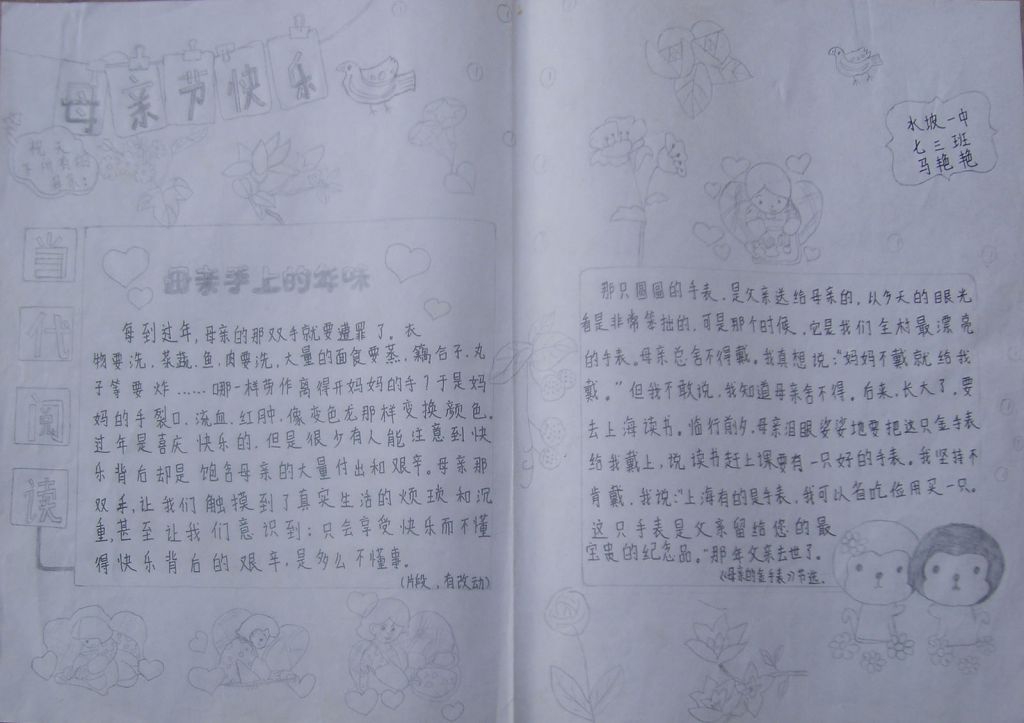 母亲节快乐
祝天
下所有的
母亲：
当代阅读
母亲手上的年味
每到过年，母亲的那双手就要遭罪了。衣
物要洗，菜蔬、鱼、肉要洗，大量的面食要蒸，藕合子、丸
子等要炸……哪一样劳作离得开妈妈的手？于是妈
妈的手裂口、流血、红肿，像变色龙那样变换颜色。
过年是喜庆快乐的，但是很少有人能注意到快
乐背后却是饱含母亲的大量付出和艰辛。母亲那
双手，让我们触摸到了真实生活的烦琐和沉
重，甚至让我们意识到：只会享受快乐而不懂
得快乐背后的艰辛，是多么不懂事。
（片段，有改动）
水坡一中
七三班
马艳艳
那只圆圆的手表，是父亲送给母亲的，以今天的眼光
看是非常笨拙的，可是那个时候，它是我们全村最漂亮
的手表。母亲总舍不得戴。我真想说：“妈妈不戴就给我
戴。”但我不敢说，我知道母亲舍不得。后来，长大了，要
去上海读书。临行前夕，母亲泪眼婆娑地要把这只金手表
给我戴上，说读书赶上课要有一只好的手表。我坚持不
肯戴，我说：“上海有的是手表，我可以省吃俭用买一只。
这只手表是父亲留给您的最
宝贵的纪念品。”那年父亲去世了。
（《母亲的金手表》）节选.